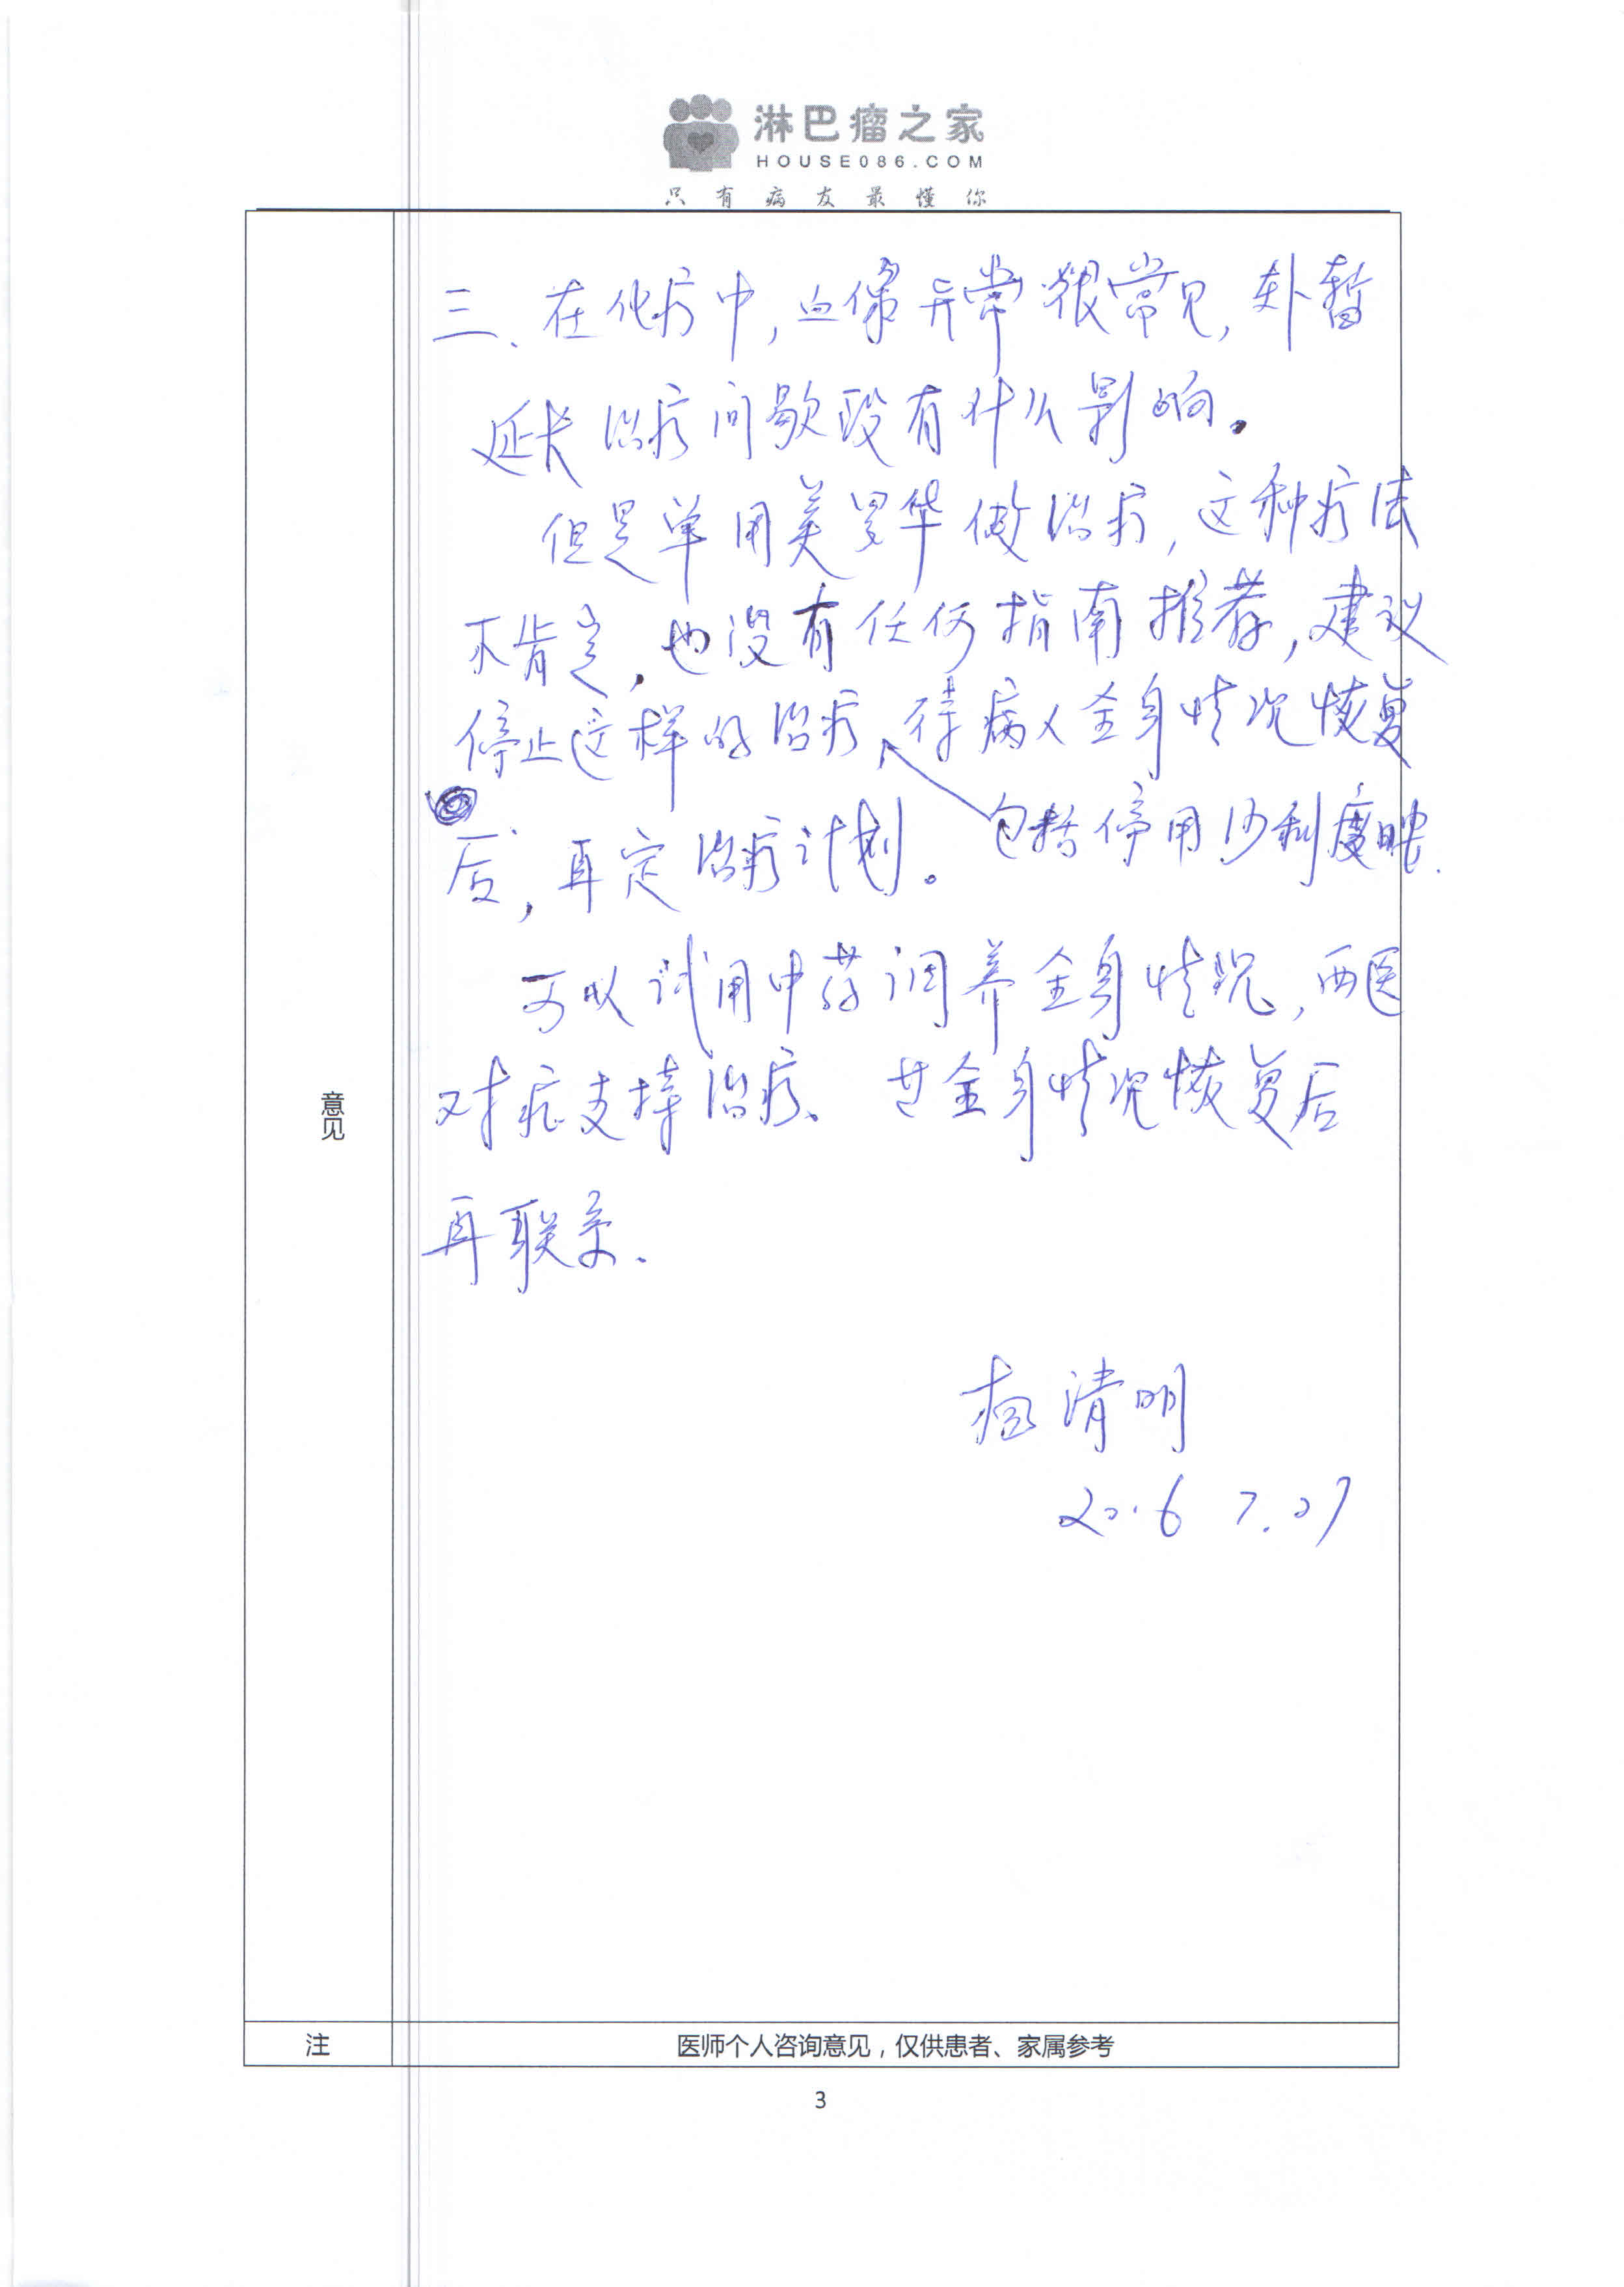 淋巴瘤之家
HOUSE086.COM
只有病友最懂你
三、在化疗中,血像异常很常见,暂
延长治疗间歇没有什么影响。
但是单用美罗华做治疗,这种疗法
不肯定,也没有任何指南推荐,建议
停止这样的治疗,待病人全身情况恢复
后,再定治疗计划。 包括停用沙利度胺.
可以试用中药调养全身情况,西医
对症支持治疗、 全身情况恢复后
再联系.
清明
2016 7.27
意见
注
医师个人咨询意见,仅供患者、家属参考
3